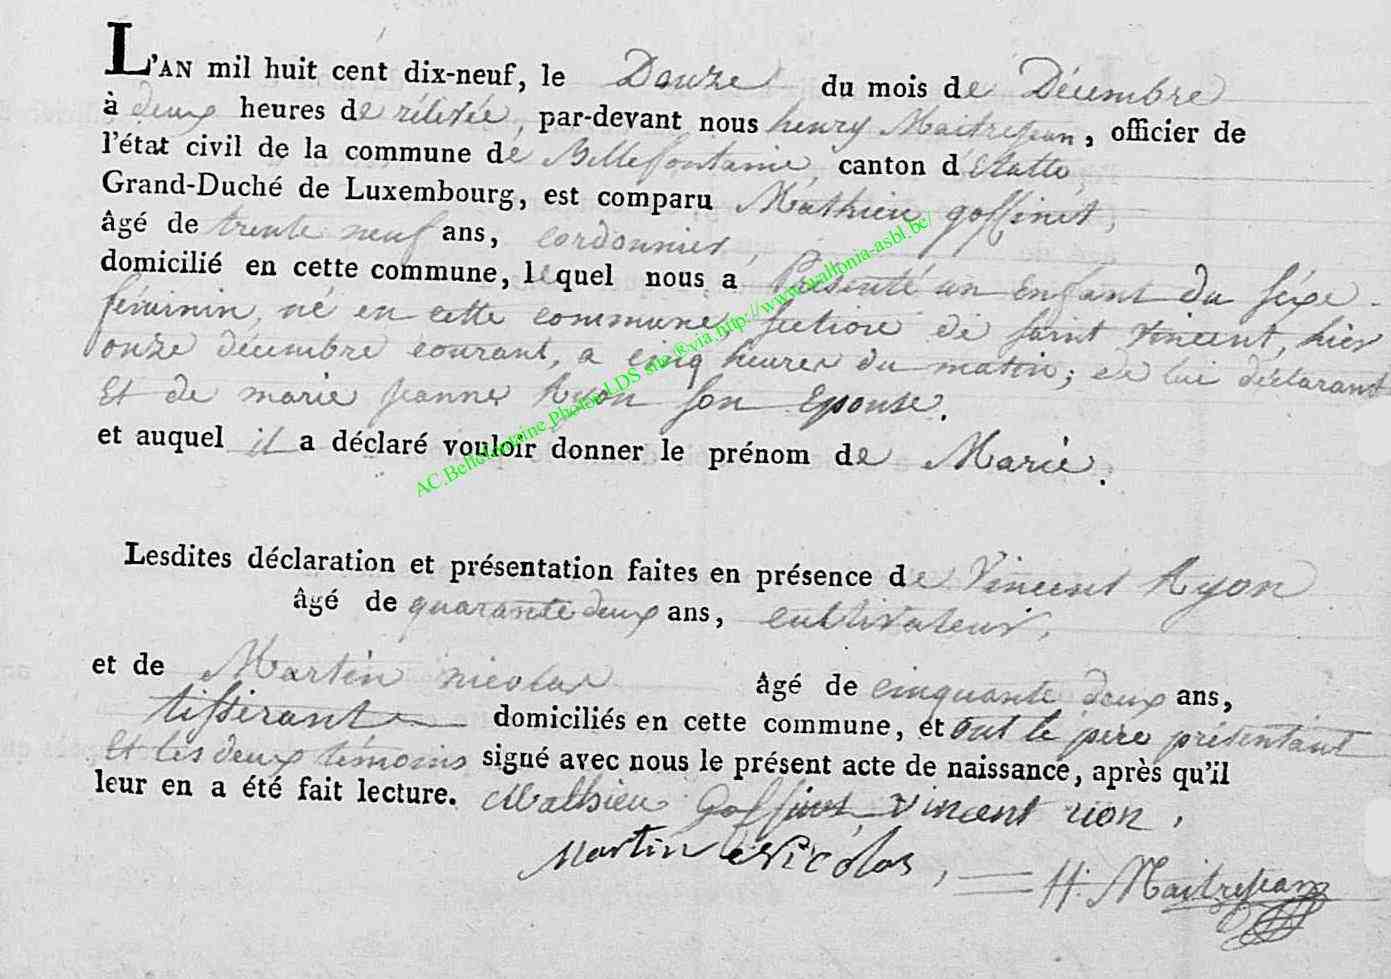 L'AN mil huit cent dix-neuf, le Douze du mois de Décembre
à deux heures de rélevée, par-devant nous henry Maitrejean, officier de
l'état civil de la commune de Bellefontaine, canton d'Etalle,
Grand-Duché de Luxembourg, est comparu Mathieu goffinet,
âgé de trente neuf ans, cordonnier,
domicilié en cette commune, lequel nous a Présenté un Enfant du Sexe
feminin, né en cette commune, section de saint vincent, hier
onze décembre courant, a cinq heures du matin; de lui déclarant
Et de marie jeanne Ryon son Epouse.
et auquel il a déclaré vouloir donner le prénom de Marie.
Lesdites déclaration et présentation faites en présence de Vincent Ryon
âgé de quarante deux ans, cultivateur,
et de Martin nicolas âgé de cinquante deux ans,
tisserant domiciliés en cette commune, et ont le père présentant
Et les deux témoins signé avec nous le présent acte de naissance, après qu'il
leur en a été fait lecture. Mathieu Goffinet, vincent rion,
Martin Nicolas, H. Maitrejean
AC.Bellefontaine Photos LDS site & via http://www.wallonia-asbl.be/